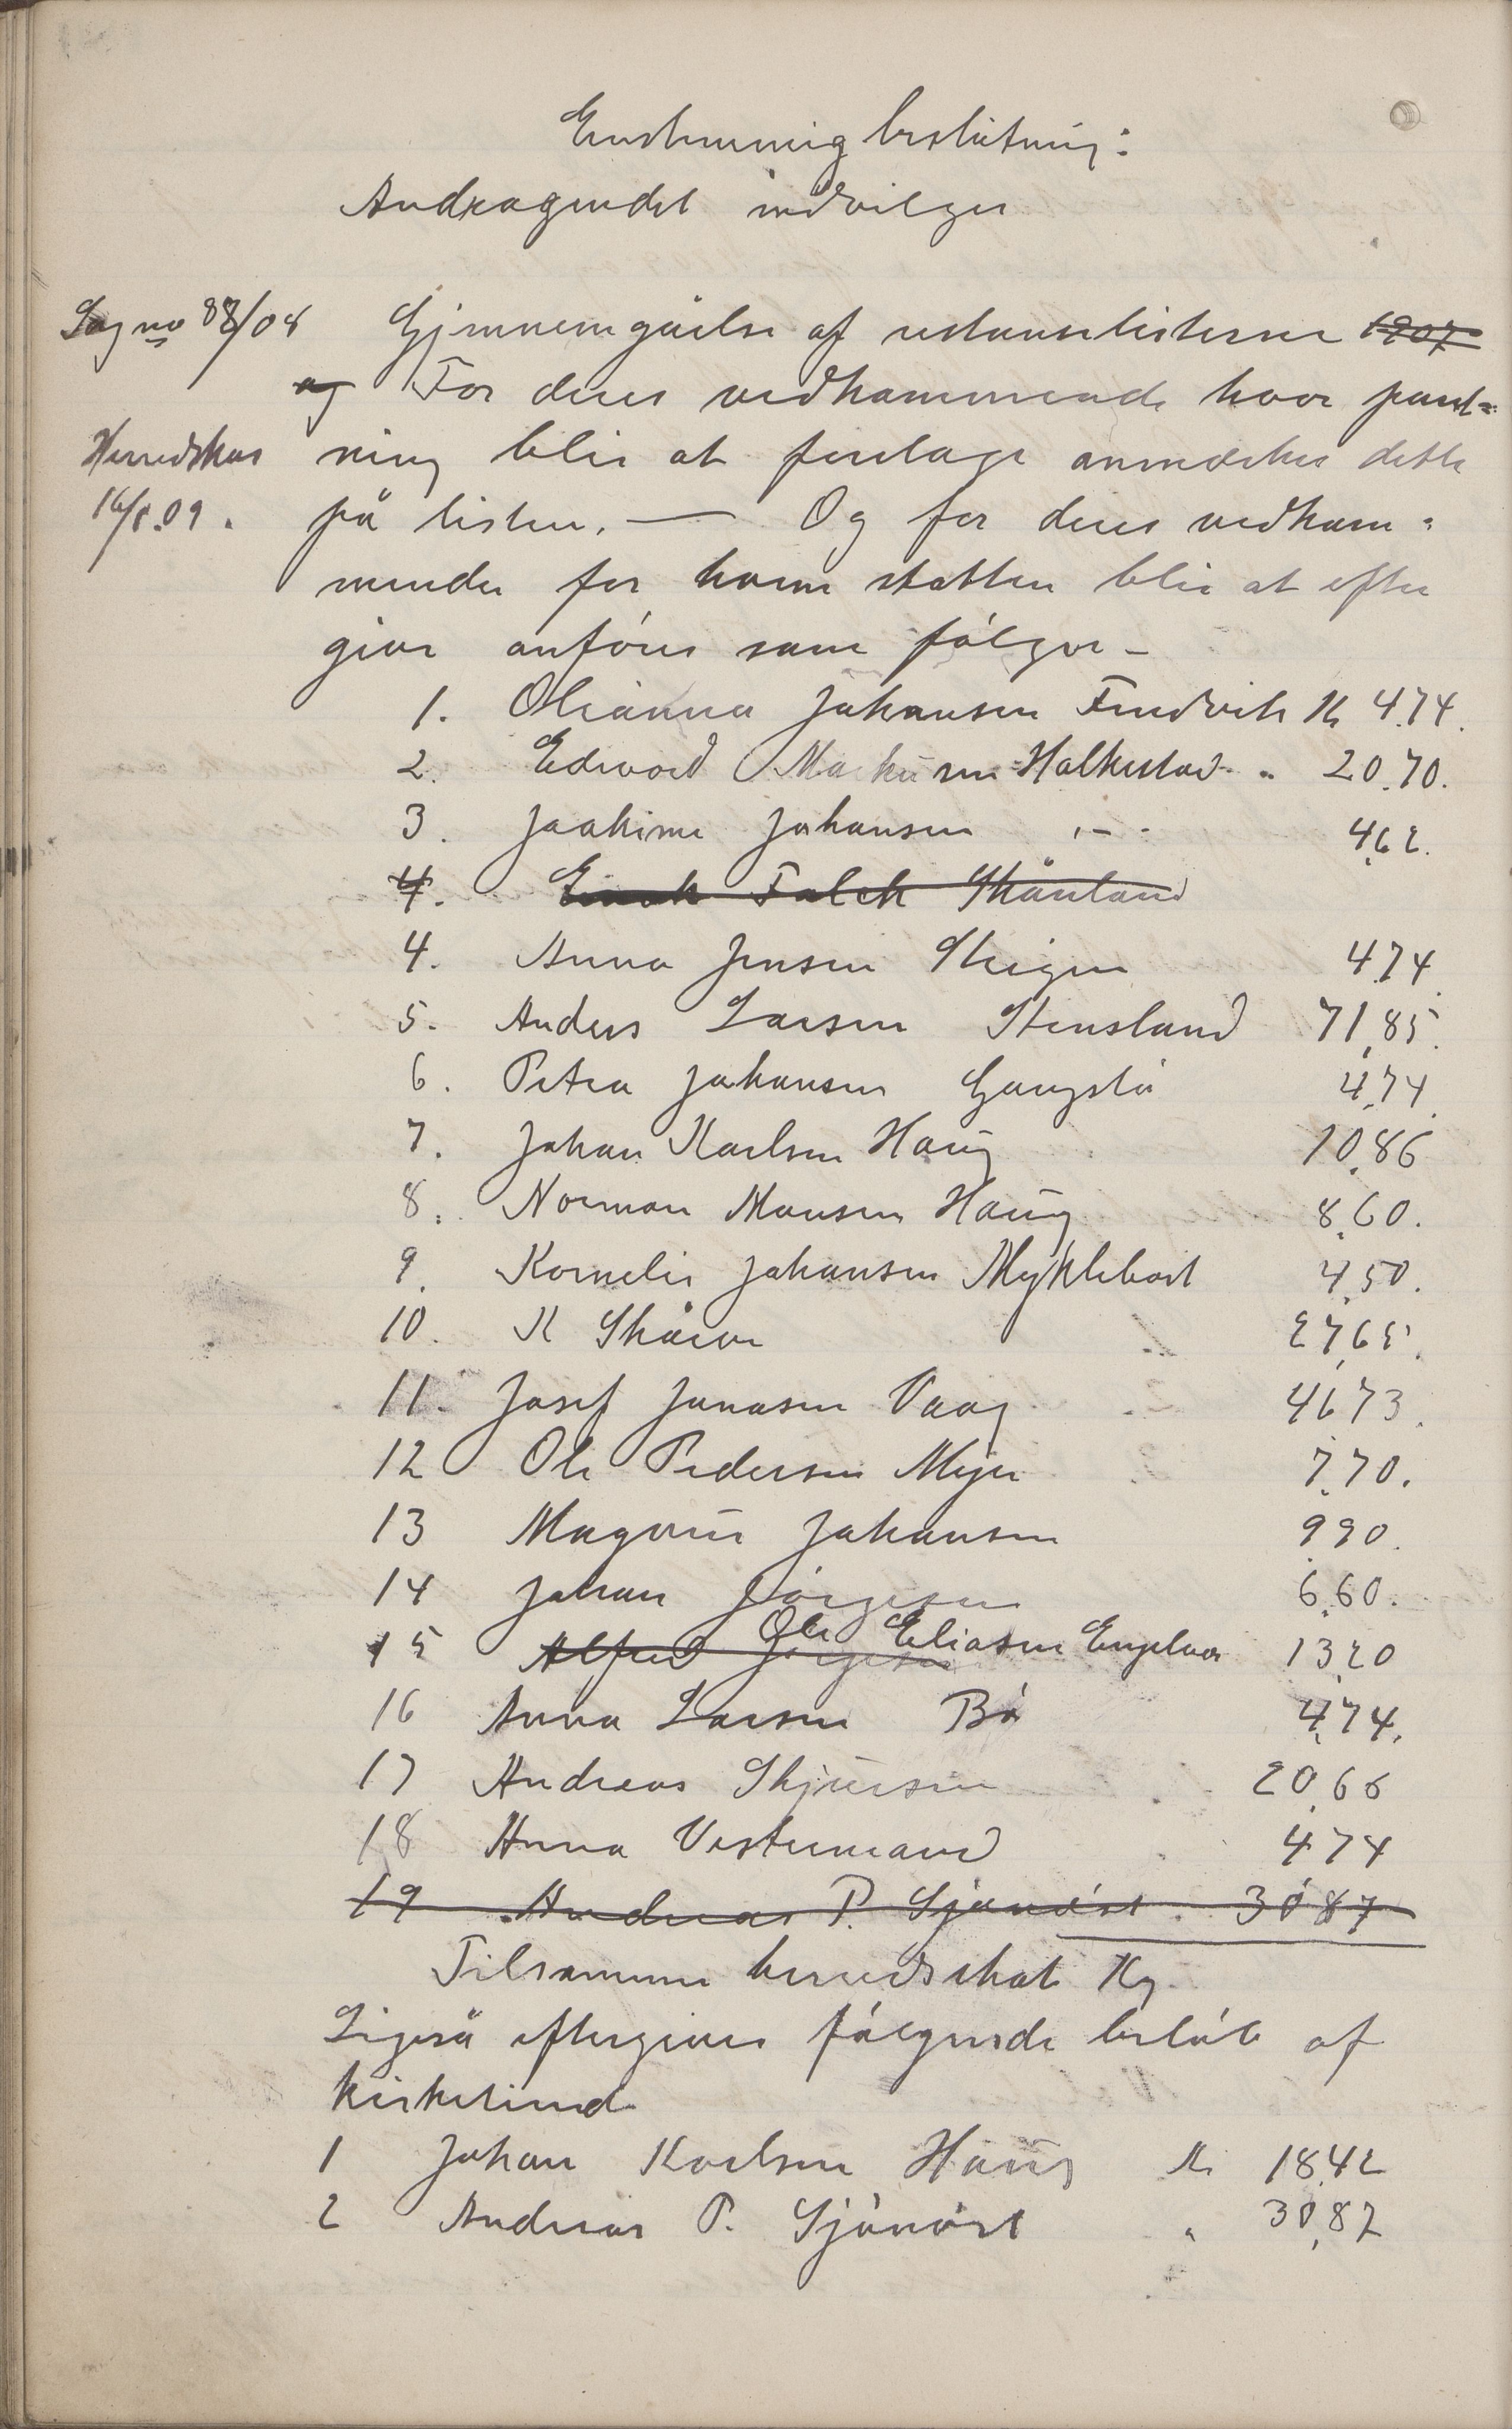 Enstemmig beslutning:
Andragendet indvilges
Sag no 88/08 Gjennemgåelse af restanselisterne 1907
og For deres vedkommende hvor pant-
Herredskas ning blir at foretage anmerkes dette
16/8.09. på listen. — Og for deres vedkom-
mender for hvem skatten blir at efter
give anføres som følger -
1. Olianna Johansen Fredvik Kr 4.74.
2. Edvard Markusen Halkestad " 20.70.
3. Joakime Johansen - " - 4,62.
4. Falch Skånland
4. Anna Jensen Steigen 4.74
5. Anders Larsen Stensland 71,85.
6. Petra Johansen Gangstø 4,74.
7. Johan Karlsen Haug 10,86
8. Norman Monsen Haug 8,60.
9. Kornelis Johansen Myklebost 4,50.
10. K Skåror 27,65.
11. Josef Jonasen Vaag 4673.
12 Ole Pedersen Myre 7.70.
13 Magnus Johansen 9.90.
14 Johan Jörgesen 6,60.
15 Alfred Jörgesen Ole Eliasen Engelvær 13,20
16 Anna Larsen Bø 4,74.
17 Andreas Skjersen 20,66
18 Anna Vestermand 4.74
19 Andreas P. Sjånöst 30 87
Tilsammen herredsskat Kr
Ligeså eftergives følgende beløb af
kirketiend
1 Johan Karlsen Haug Kr 18,42
2 Andreas P. Sjånöst " 30,82